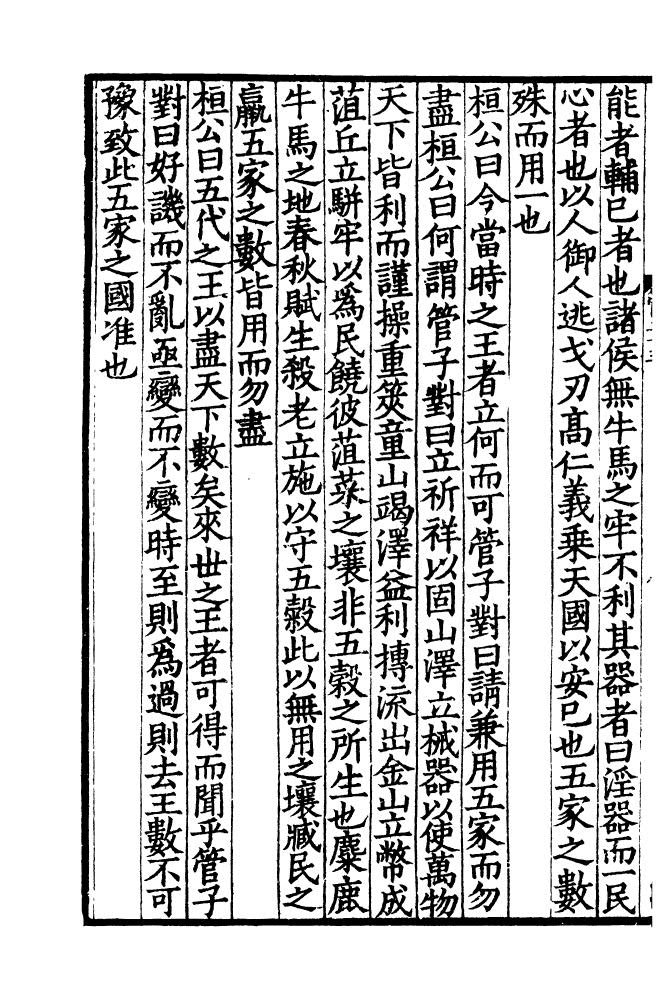 能者輔已者也諸侯無牛馬之牢不利其器者曰淫器而一民
心者也以人御人逃戈刃高仁義乗天國以安已也五家之數
殊而用一也
桓公曰今當時之王者立何而可管子對曰請兼用五家而勿
盡桓公曰何謂管子對曰立祈祥以固山澤立械器以使萬物
天下皆利而謹操重筴童山竭澤益利摶流出金山立幣成
菹丘立駢牢以爲民饒彼菹菜之壤非五榖之所生也麋鹿
牛馬之地春秋賦生殺老立施以守五榖此以無用之壤臧民之
羸五家之數皆用而勿盡
桓公曰五代之王以盡天下數矣來丗之王者可得而聞乎管子
對曰好譏而不亂亟變而不變時至則爲過則去王數不可
豫致此五家之國准也